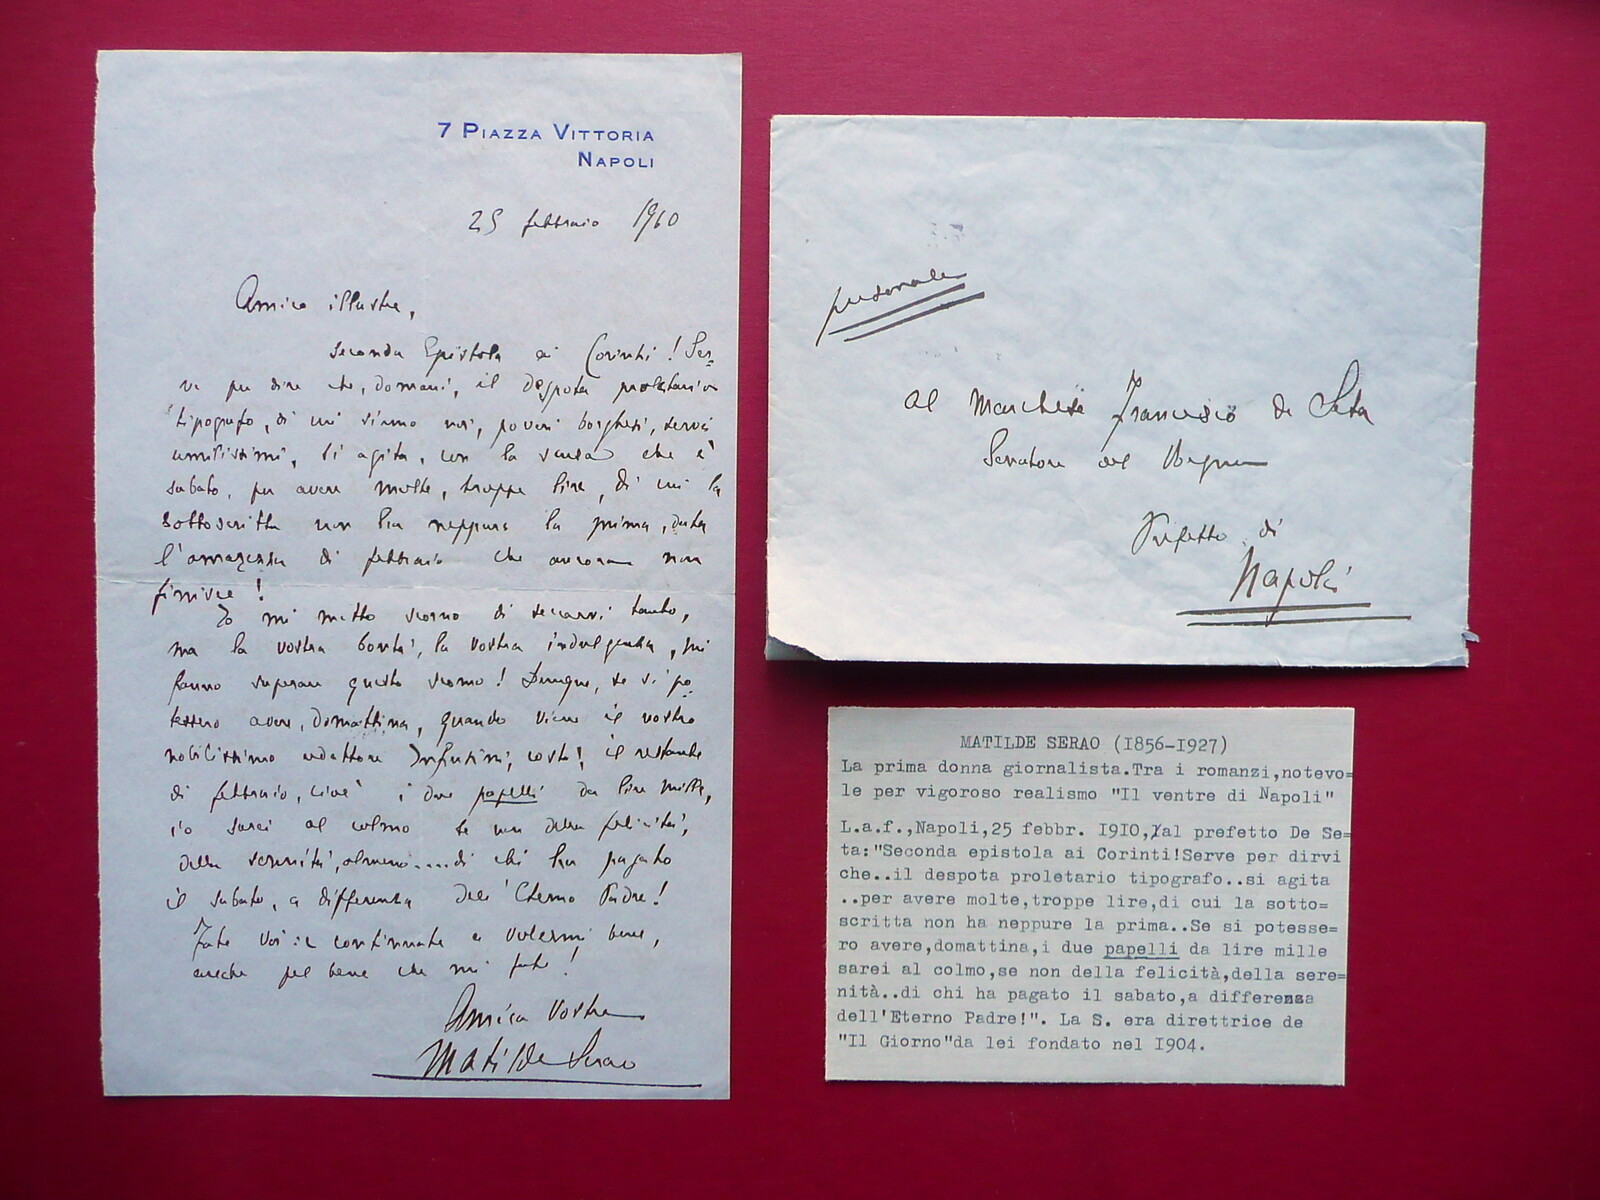 7 PIAZZA VITTORIA
NAPOLI
25 febbraio 1910
Amico illustre,
Seconda Epistola ai Corinti! Ser=
ve per dire che, domani, il despota proletario
tipografo, di cui siamo noi, poveri borghesi, servi
umilissimi, si agita, con la scusa che è
sabato, per avere molte, troppe lire, di cui la
sottoscritta non ha neppure la prima, data
l'amarezza di febbraio che ancora non
finisce!
Io mi metto scorno di seccarvi tanto,
ma la vostra bontà, la vostra indulgenza, mi
fanno superare questo scorno! Dunque, se si po=
tessero avere, domattina, quando viene il vostro
nobilissimo redattore costà, il restante
di febbraio, cioè i due papelli da lire mille,
io sarei al colmo se non della felicità,
della serenità, almeno....di chi ha pagato
il sabato, a differenza dell'Eterno Padre!
Fate voi continuate a volermi bene,
anche pel bene che mi fate!
Amica Vostra
Matilde Serao
personale
Al Marchese Francesco de Seta
Senatore del Regno
Prefetto di
Napoli
MATILDE SERAO (1856-1927)
La prima donna giornalista.Tra i romanzi,notevo=
le per vigoroso realismo "Il ventre di Napoli"
L.a.f.,Napoli,25 febbr. 1910,al prefetto De Se=
ta:"Seconda epistola ai Corinti!Serve per dirvi
che..il despota proletario tipografo..si agita
..per avere molte,troppe lire,di cui la sotto=
scritta non ha neppure la prima..Se si potesse=
ro avere,domattina,i due papelli da lire mille
sarei al colmo,se non della felicità,della sere=
nità..di chi ha pagato il sabato,a differenza
dell'Eterno Padre!". La S. era direttrice de
"Il Giorno"da lei fondato nel 1904.